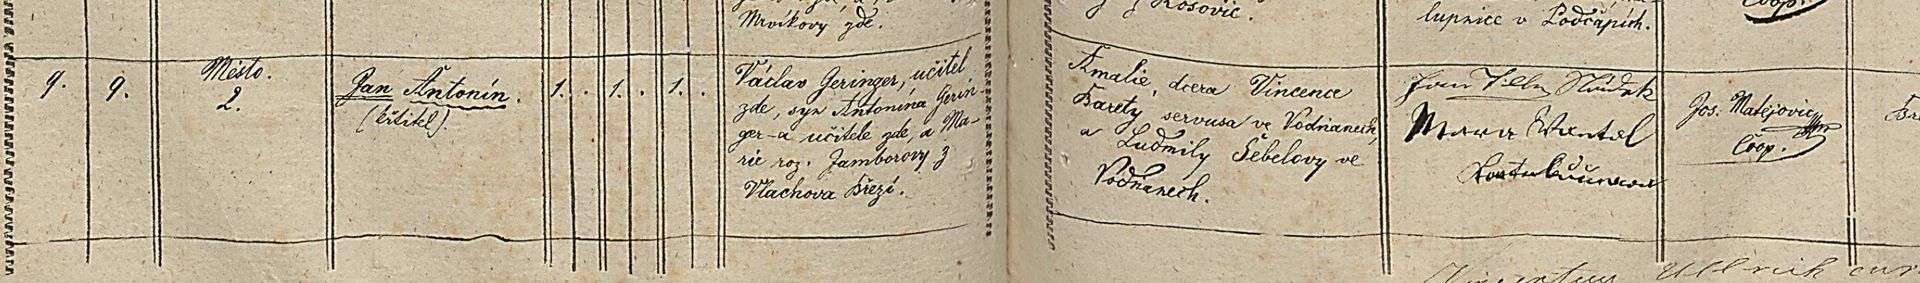 Mrvíkovy zde.
Rosovic.
lupnice v Podčápích.
Coop.
9. 9. Město. 2.
Jan Antonín.
(křtitel).
1. 1. 1.
Václav Geringer, učitel
zde, syn Antonína Gerin-
ger-a učitele zde, a Ma-
rie roz. Jamborovy z
Vlachova Březí.
Amalie, dcera Vincence
Barety servusa ve Vodňanech,
a Ludmily Šebelovy ve
Vodňanech.
Jos. Matějovic
Coop.
Ullrich